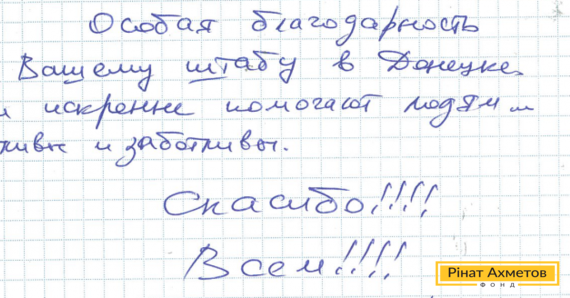 Особая благодарность
Вашему штабу в Донецке.
и искренне помогают людям
и заботливы.
Спасибо!!!!
Всем!!!!
Рінат Ахметов
ФОНД